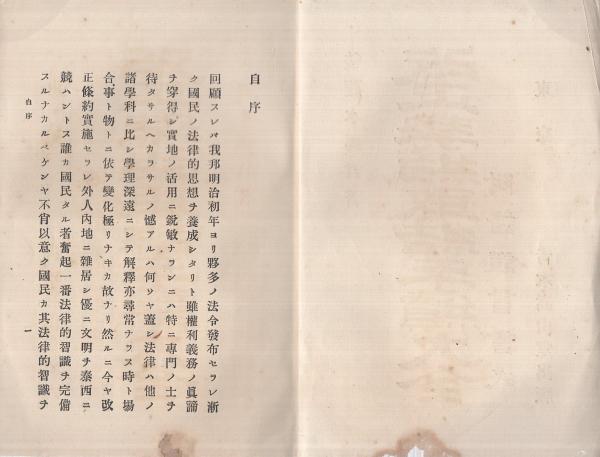 自序
回顧スレバ我邦明治初年ヨリ夥多ノ法令發布セラレ漸
ク國民ノ法律的思想チ養成シタリト雖權利義務ノ眞諦
チ穿得シ實地ノ活用ニ鋭敏ナランニハ特ニ專門ノ士チ
待タサルヘカラサルノ憾アルハ何ソヤ蓋シ法律ハ他ノ
諸學科ニ比シ學理深遠ニシテ解釋亦尋常ナラス時ト塲
合事ト物トニ依テ變化極リナキカ故ナリ然ルニ今ヤ改
正條約實施セラレ外人内地ニ雜居シ優ニ文明チ泰西ニ
競ハントス誰カ國民タル者奮起一番法律的智識チ完備
スルナカルベケンヤ不肖以意ク國民カ其法律的智識チ
自序
一